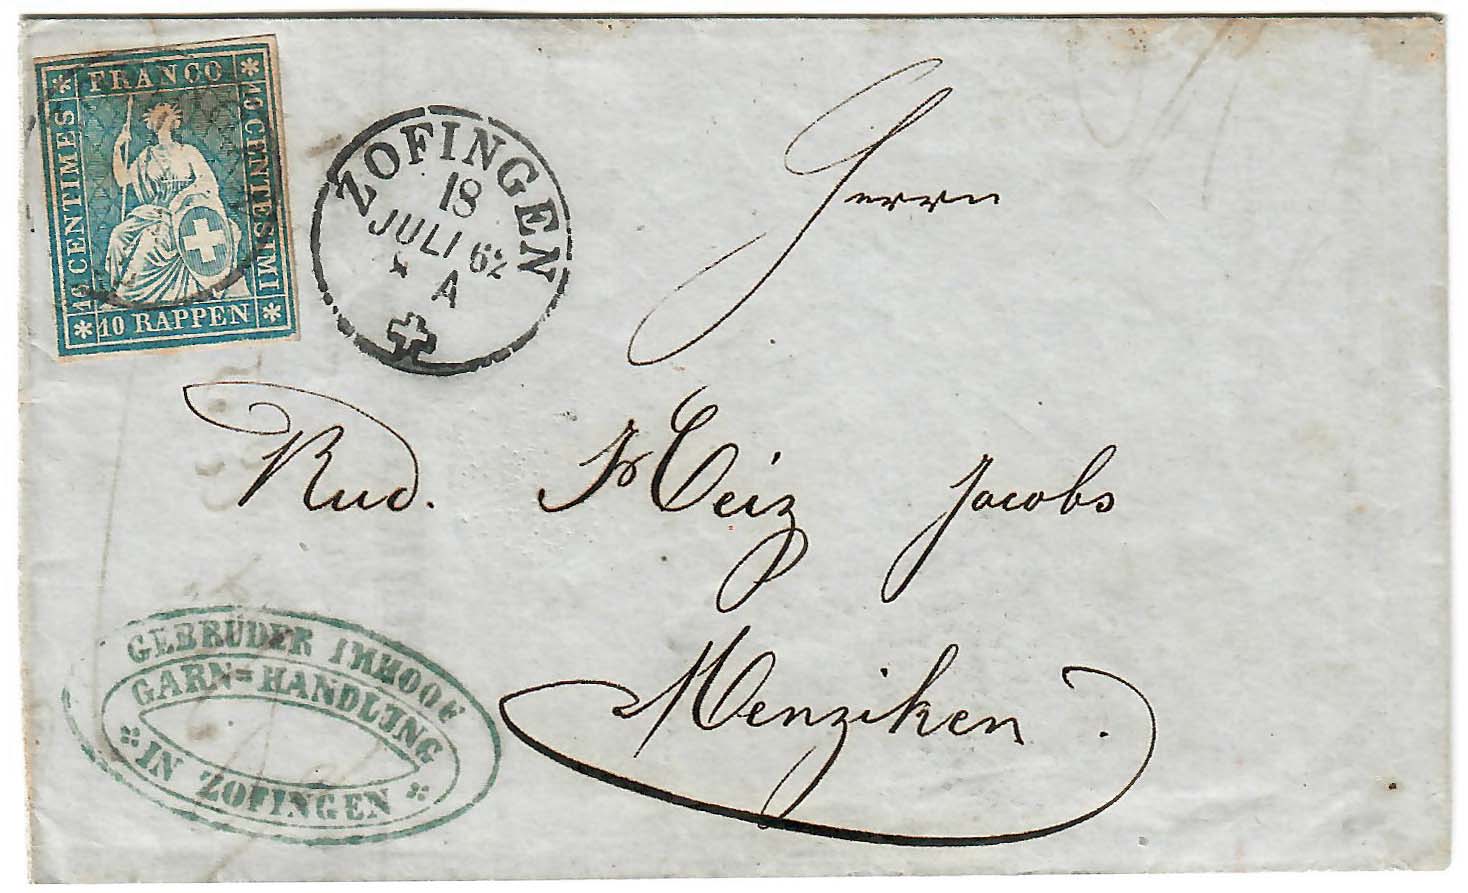 FRANCO
10 CENTIMES
10 CENTESIMI
10 RAPPEN
ZOFINGEN
18
JULI 62
A
Herrn
Rud. Heiz Jacobs
Menziken.
GEBRÜDER IMHOOF
GARN=HANDLUNG
IN ZOFINGEN